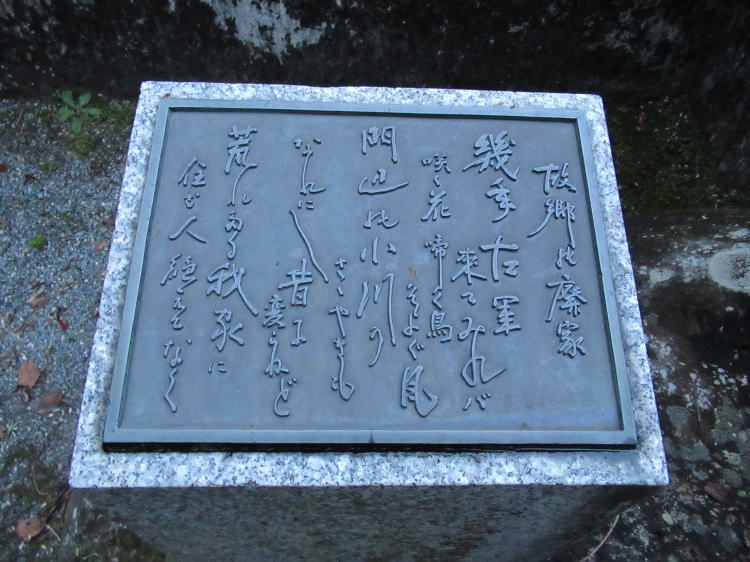 故郷の廃家
幾年古里
来てみれバ
咲く花 啼く鳥
そよぐ風
門辺の小川の
さゝやきも
なれにし昔に
変らねど
荒れたる我家に
住む人絶えてなく